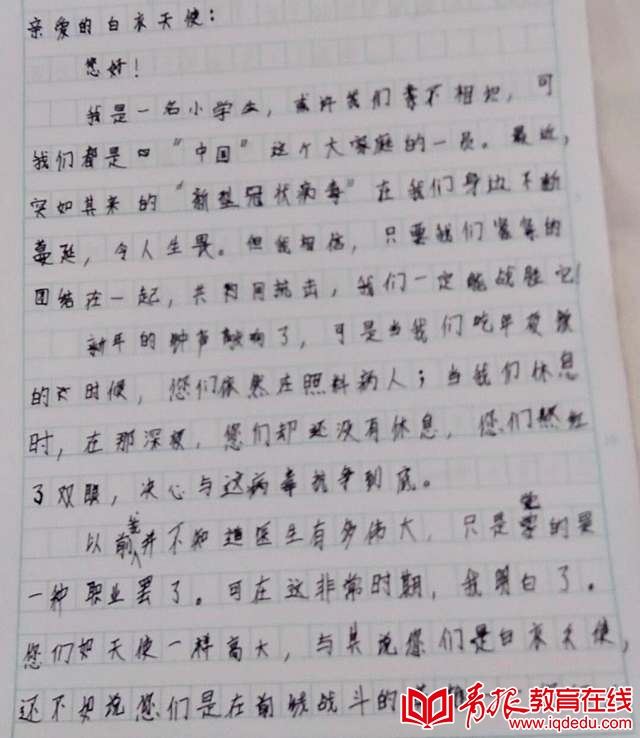 亲爱的白衣天使:
您好!
我是一名小学生,或许我们素不相识,可
我们都是“中国”这个大家庭的一员。最近,
突如其来的“新型冠状病毒”在我们身边不断
蔓延,令人生畏。但我相信,只要我们紧紧的
团结在一起,共同抗击,我们一定能战胜它!
新年的钟声敲响了,可是当我们吃年夜饭
的时候,您们依然在照料病人;当我们休息
时,在那深夜,您们却还没有休息,您们熬红
了双眼,决心与这病毒抗争到底。
以前我并不知道医生有多伟大,只是觉的是
一种职业罢了。可在这非常时期,我明白了。
您们如天使一样高大,与其说您们是白衣天使,
还不如说您们是在前线战斗的
青报教育在线
www.iqdedu.com